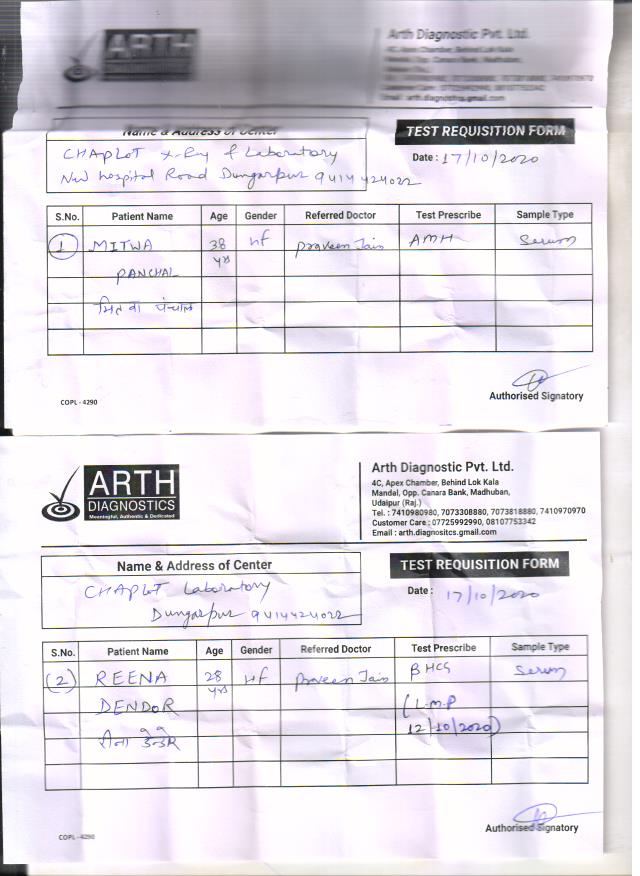 ARTH
Arth Diagnostic Pvt. Ltd.
4C, Apex Chamber, Behind Lok Kala
Mandal, Opp. Canara Bank, Madhuban,
Name & Address of Center
TEST REQUISITION FORM
CHAPLOT X-Ray & Laboratory
Date: 17/10/2020
New Hospital Road Dungarpur 9414424022
S.No. Patient Name Age Gender Referred Doctor Test Prescribe Sample Type
1 MITWA 38 F Praveen Jain AMH Serum
PANCHAL yrs
मितवा पंचाल
Authorised Signatory
COPL - 4290
ARTH
DIAGNOSTICS
Meaningful, Authentic & Dedicated
Arth Diagnostic Pvt. Ltd.
4C, Apex Chamber, Behind Lok Kala
Mandal, Opp. Canara Bank, Madhuban,
Udaipur (Raj.)
Tel. : 7410980980, 7073308880, 7073818880, 7410970970
Customer Care : 07725992990, 08107753342
Email : arth.diagnositcs.gmail.com
Name & Address of Center
TEST REQUISITION FORM
CHAPLOT Laboratory
Date : 17/10/2020
Dungarpur 9414424022
S.No. Patient Name Age Gender Referred Doctor Test Prescribe Sample Type
(2) REENA 28 F Praveen Jain BHCG Serum
yrs
DENDOR (L.M.P
रीना डेन्डोर 12/10/2020)
Authorised Signatory
COPL - 4290